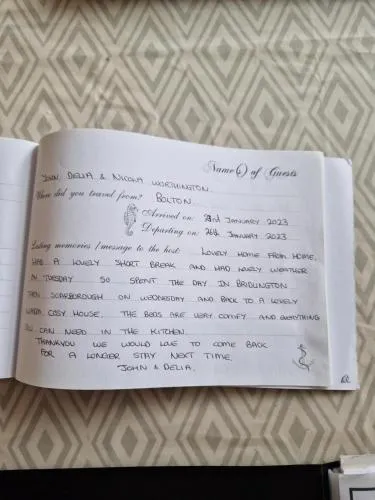 Name(s) of Guests
JOHN, DELIA & NICOLA WORTHINGTON.
Where did you travel from? BOLTON.
Arrived on: 23rd JANUARY 2023
Departing on: 26th JANUARY 2023
Lasting memories / message to the host: LOVELY HOME FROM HOME,
HAD A LOVELY SHORT BREAK AND HAD LOVELY WEATHER
IN TUESDAY SO SPENT THE DAY IN BRIDLINGTON
THEN SCARBOROUGH ON WEDNESDAY AND BACK TO A LOVELY
WARM COSY HOUSE. THE BEDS ARE VERY COMFY AND EVERYTHING
YOU CAN NEED IN THE KITCHEN.
THANKYOU WE WOULD LOVE TO COME BACK
FOR A LONGER STAY NEXT TIME.
JOHN & DELIA.